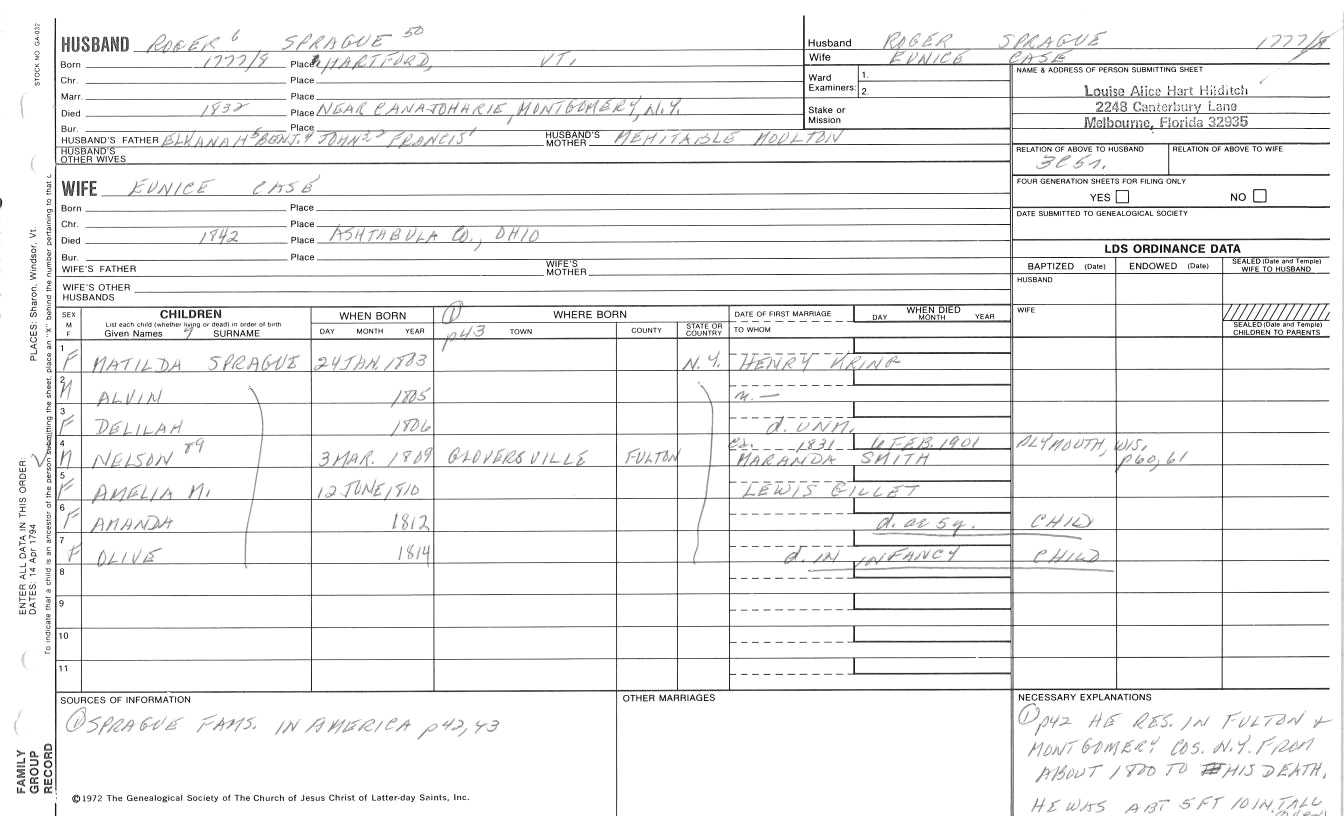 STOCK NO. GA-032
PLACES: Sharon, Windsor, Vt.
ENTER ALL DATA IN THIS ORDER:
DATES: 14 Apr 1794
To indicate that a child is an ancestor of the person submitting the sheet, place an "X" behind the number pertaining to that c
FAMILY
GROUP
RECORD
HUSBAND ROGER 6 SPRAGUE 50
Born 1777/8 Place HARTFORD, VT.
Chr. Place
Marr. Place
Died 1832 Place NEAR CANAJOHARIE, MONTGOMERY, N.Y.
Bur. Place
HUSBAND'S FATHER ELKANAH 5 BENJ. 4 JOHN 3 2 FRANCIS 1 HUSBAND'S MOTHER MEHITABLE MOULTON
HUSBAND'S
OTHER WIVES
WIFE EUNICE CASE
Born Place
Chr. Place
Died 1842 Place ASHTABULA CO., OHIO
Bur. Place
WIFE'S FATHER WIFE'S MOTHER
WIFE'S OTHER
HUSBANDS
Husband ROGER SPRAGUE 1777/8
Wife EUNICE CASE
Ward 1.
Examiners: 2.
Stake or
Mission
NAME & ADDRESS OF PERSON SUBMITTING SHEET
Louise Alice Hart Hilditch
2248 Canterbury Lane
Melbourne, Florida 32935
RELATION OF ABOVE TO HUSBAND RELATION OF ABOVE TO WIFE
3C5r.
FOUR GENERATION SHEETS FOR FILING ONLY
YES NO
DATE SUBMITTED TO GENEALOGICAL SOCIETY
LDS ORDINANCE DATA
BAPTIZED (Date) ENDOWED (Date) SEALED (Date and Temple) WIFE TO HUSBAND
HUSBAND
WIFE
SEALED (Date and Temple)
CHILDREN TO PARENTS
SEX M F CHILDREN WHEN BORN ① WHERE BORN DATE OF FIRST MARRIAGE WHEN DIED
List each child (whether living or dead) in order of birth
Given Names 7 SURNAME DAY MONTH YEAR p43 TOWN COUNTY STATE OR COUNTRY TO WHOM DAY MONTH YEAR
1 F MATILDA SPRAGUE 24 JAN. 1803 N.Y. HENRY KRING
2 M ALVIN 1805 m. —
3 F DELILAH 1806 d. UNM.
4 M NELSON 89 3 MAR. 1809 GLOVERSVILLE FULTON ca. 1831 6 FEB. 1901 PLYMOUTH, WIS.
MARANDA SMITH p60, 61
5 F AMELIA M. 12 JUNE 1810 LEWIS GILLET
6 F AMANDA 1812 d. ae 5y. CHILD
7 F OLIVE 1814 d. IN INFANCY CHILD
8
9
10
11
SOURCES OF INFORMATION
① SPRAGUE FAMS. IN AMERICA p42, 43
OTHER MARRIAGES
NECESSARY EXPLANATIONS
① p42 HE RES. IN FULTON &
MONTGOMERY COS. N.Y. FROM
ABOUT 1800 TO HIS DEATH.
HE WAS ABT 5 FT 10 IN. TALL
©1972 The Genealogical Society of The Church of Jesus Christ of Latter-day Saints, Inc.